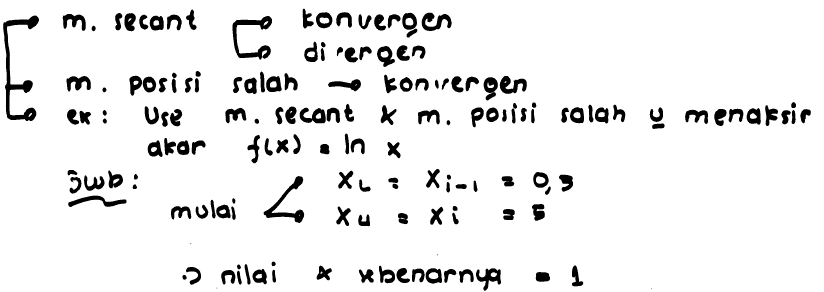 m. secant
konvergen
divergen
m. posisi salah → konvergen
ex: Use m. secant & m. posisi salah u menaksir
akar f(x) = ln x
Jwb:
mulai
XL = Xi-1 = 0,5
Xu = Xi = 5
nilai x xbenarnya = 1